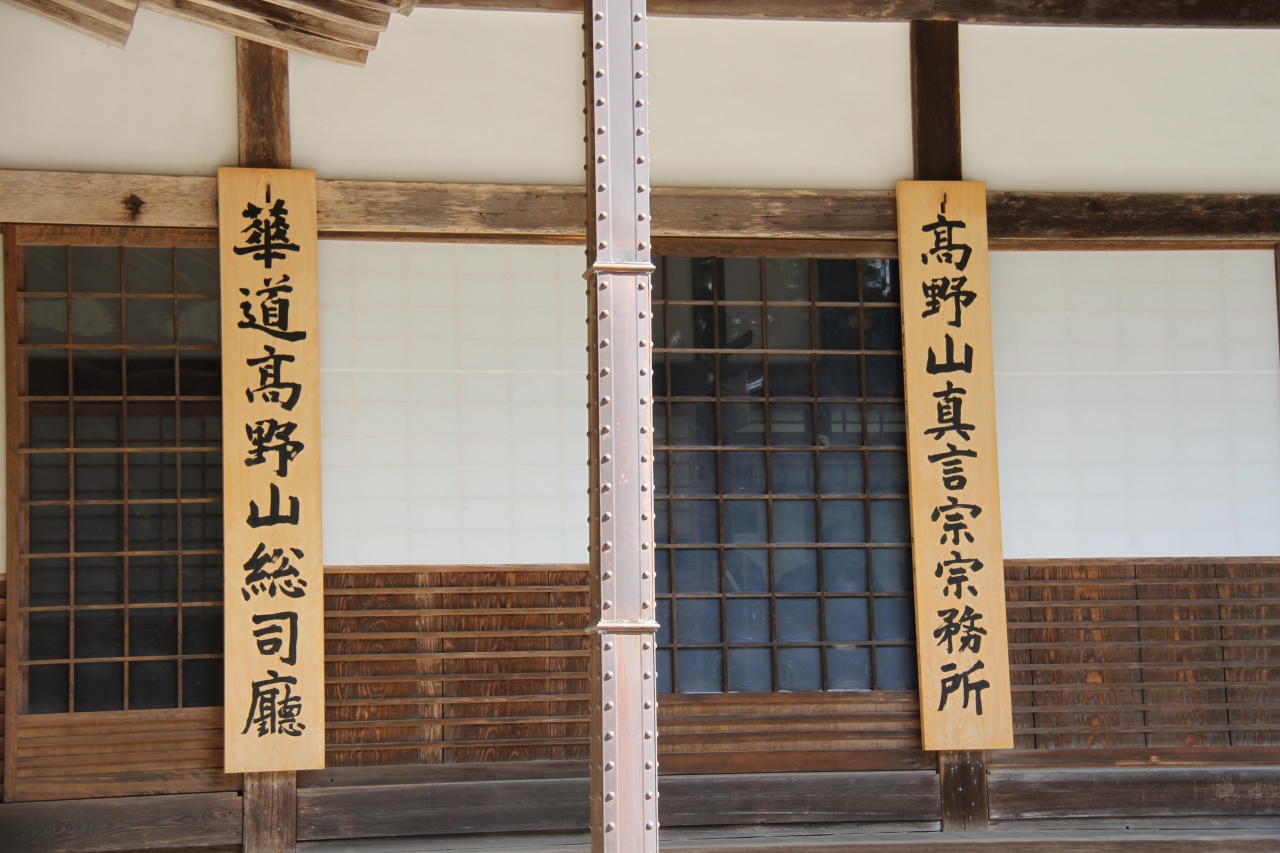 高野山真言宗宗務所
華道高野山総司廳